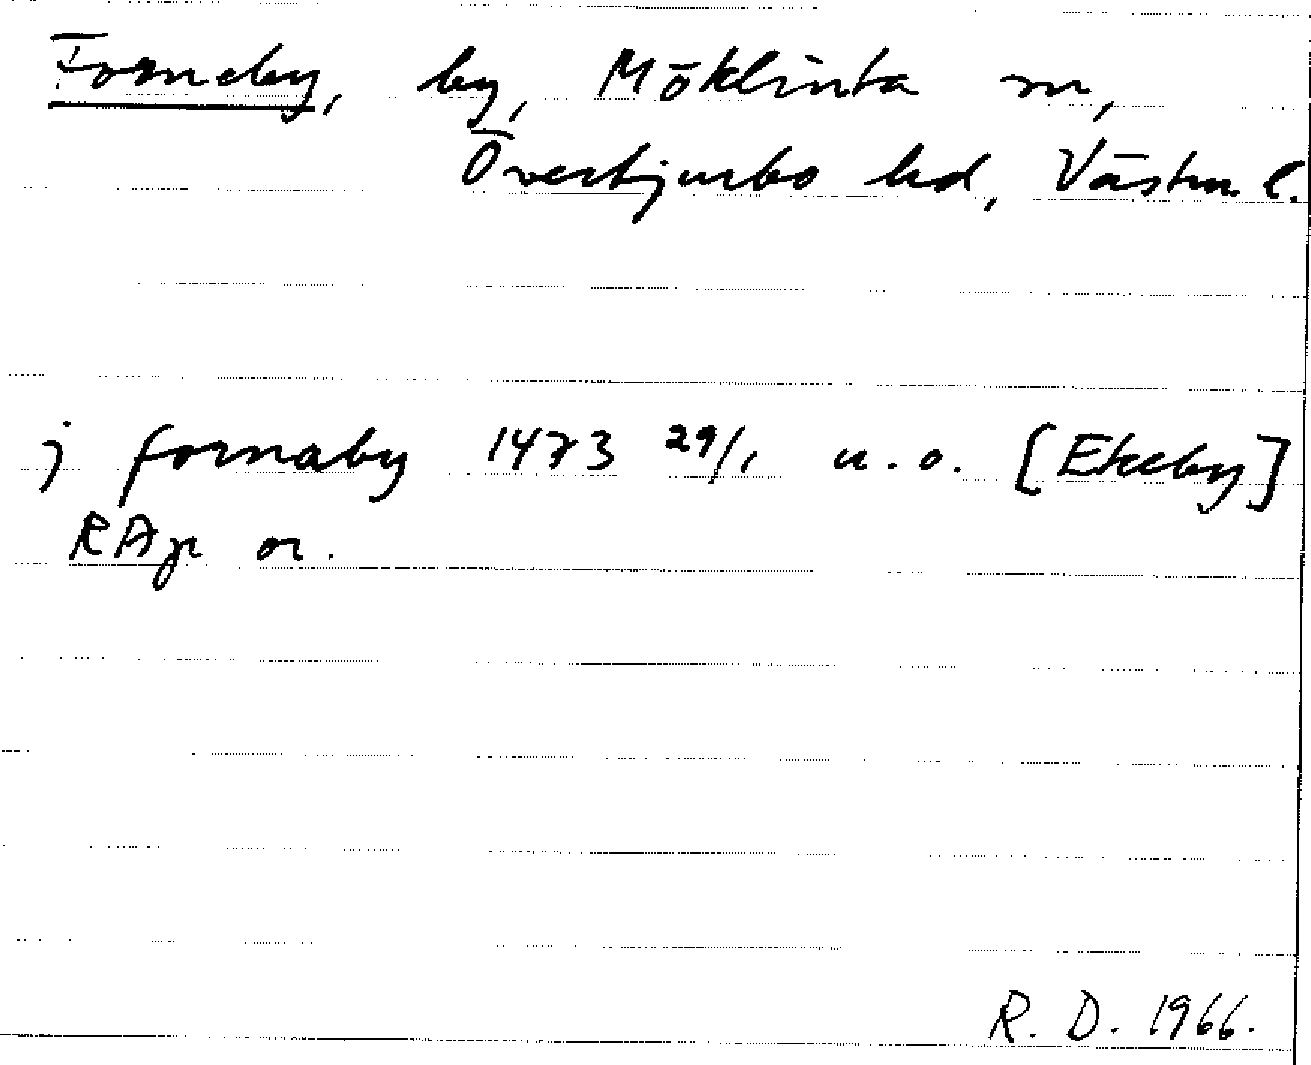 Forneby, by, Möklinta sn,
Övertjurbo hd, Västm. l.
j fornaby 1473 29/1 u.o. [Ekeby]
RAp or.
R. D. 1966.